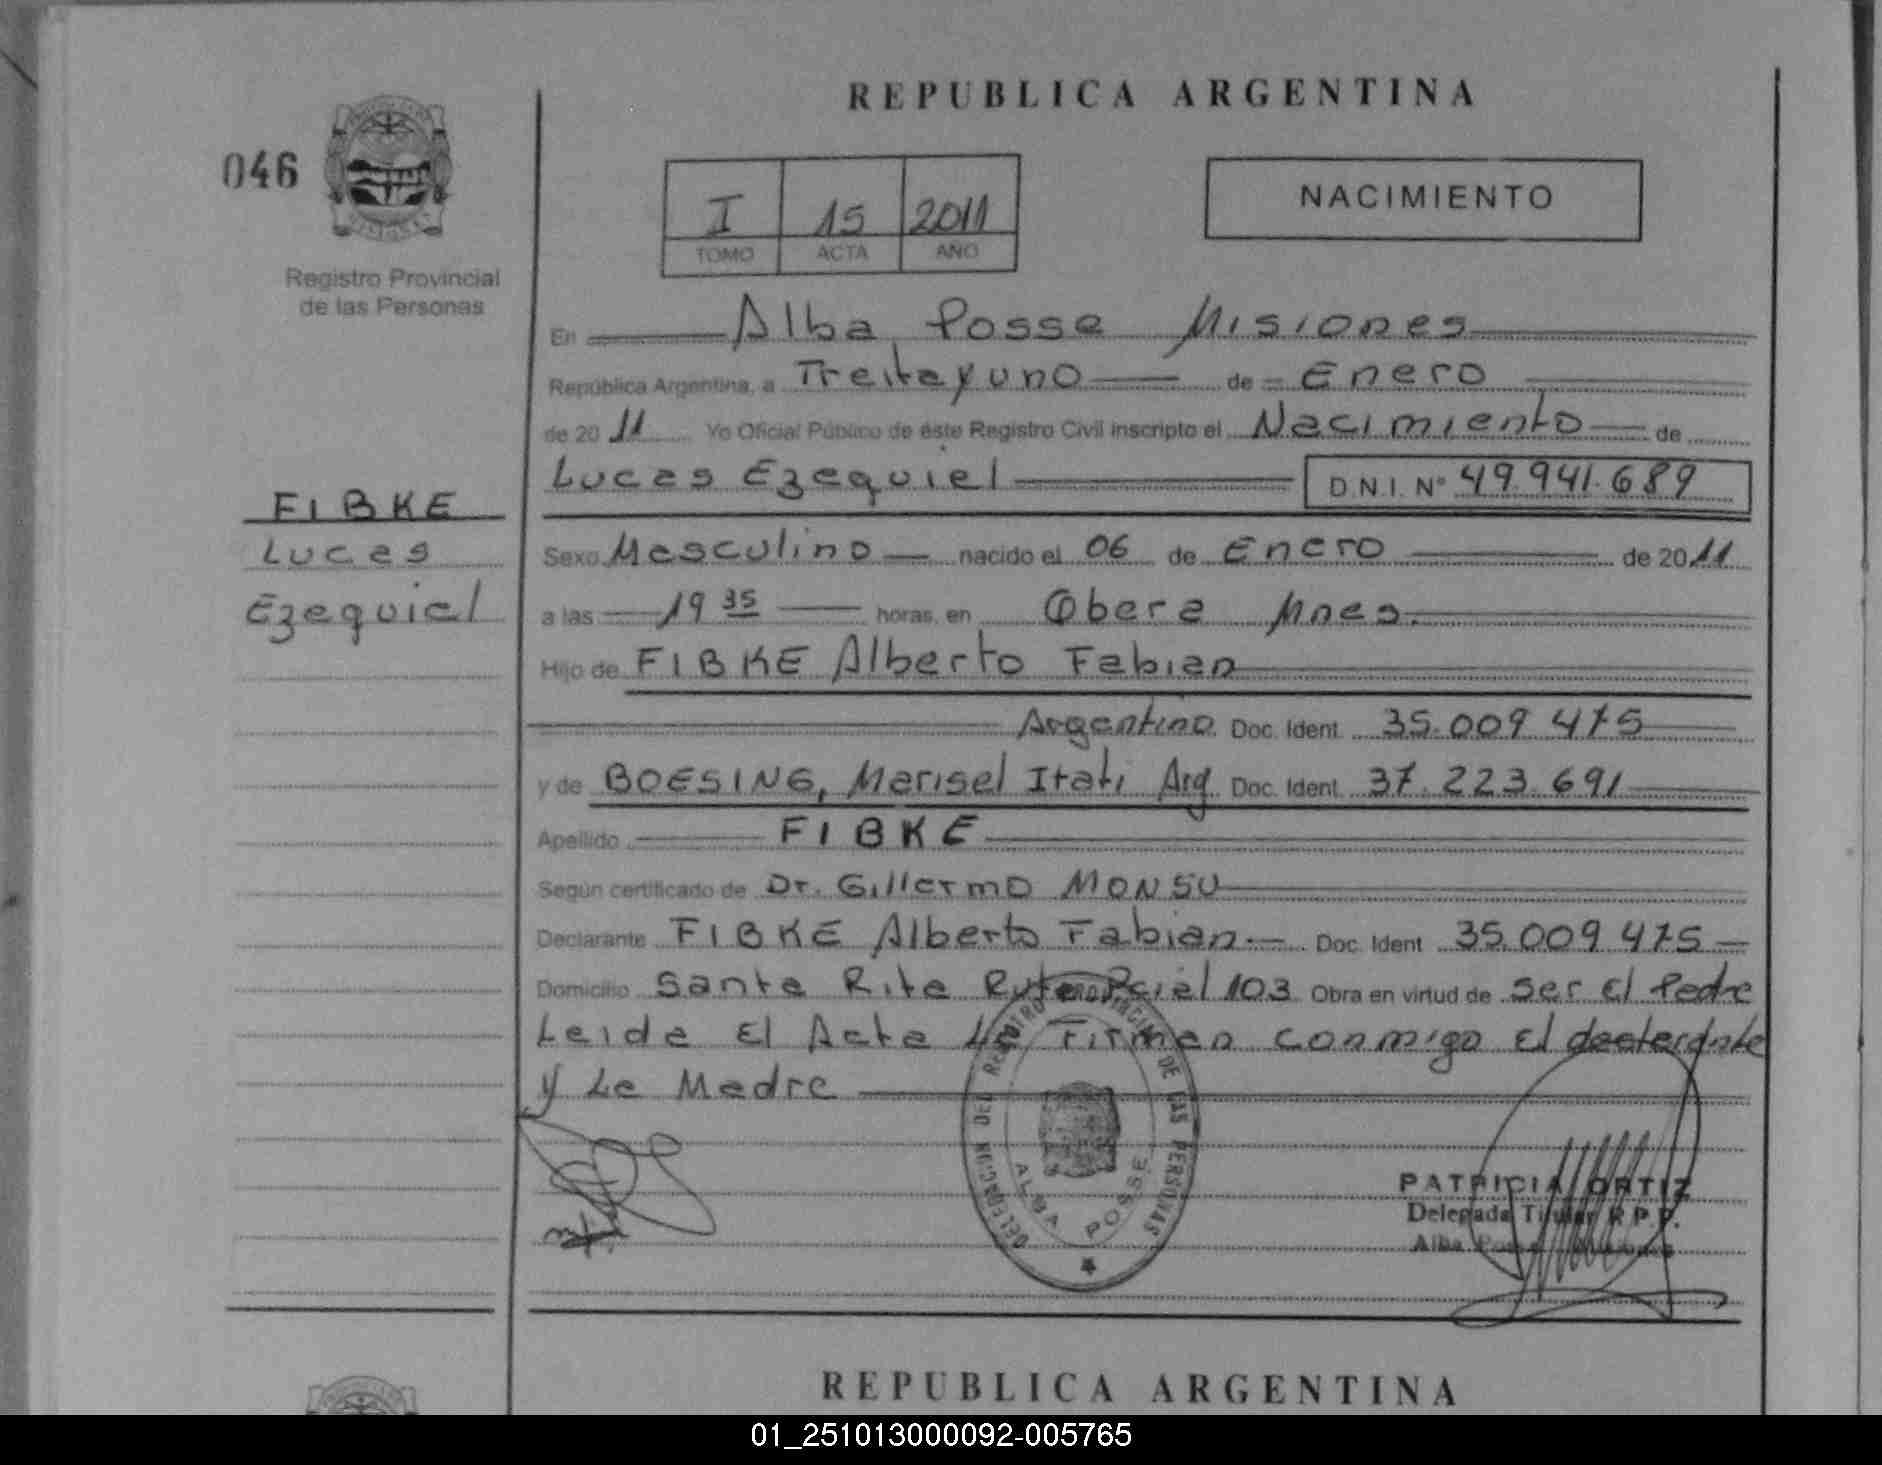 REPUBLICA ARGENTINA
046
I 15 2011
TOMO ACTA AÑO
NACIMIENTO
Registro Provincial
de las Personas
En Alba Posse Misiones
República Argentina, a Treitayuno de Enero
de 20 11 Yo Oficial Público de éste Registro Civil inscripto el Nacimiento de
Lucas Ezequiel D.N.I. Nº 49.941.689
FIBKE
Lucas
Ezequiel
Sexo Masculino nacido el 06 de Enero de 20 11
a las 19 35 horas, en Obera Mnes.
Hijo de FIBKE Alberto Fabian
Argentino Doc. Ident. 35.009.475
y de BOESING, Marisel Itati Arg Doc. Ident. 37.223.691
Apellido FIBKE
Según certificado de Dr. Gillermo MONSU
Declarante FIBKE Alberto Fabian Doc. Ident 35.009.475
Domicilio Santa Rita Ruta Pcial 103 Obra en virtud de Ser El Padre
Leida El Acta La Firman conmigo El declarante
y La Madre
DELEGACION DEL REGISTRO PROVINCIAL DE LAS PERSONAS
ALBA POSSE
PATRICIA ORTIZ
Delegada Titular R.P.P.
Alba Posse Misiones
REPUBLICA ARGENTINA
01_251013000092-005765